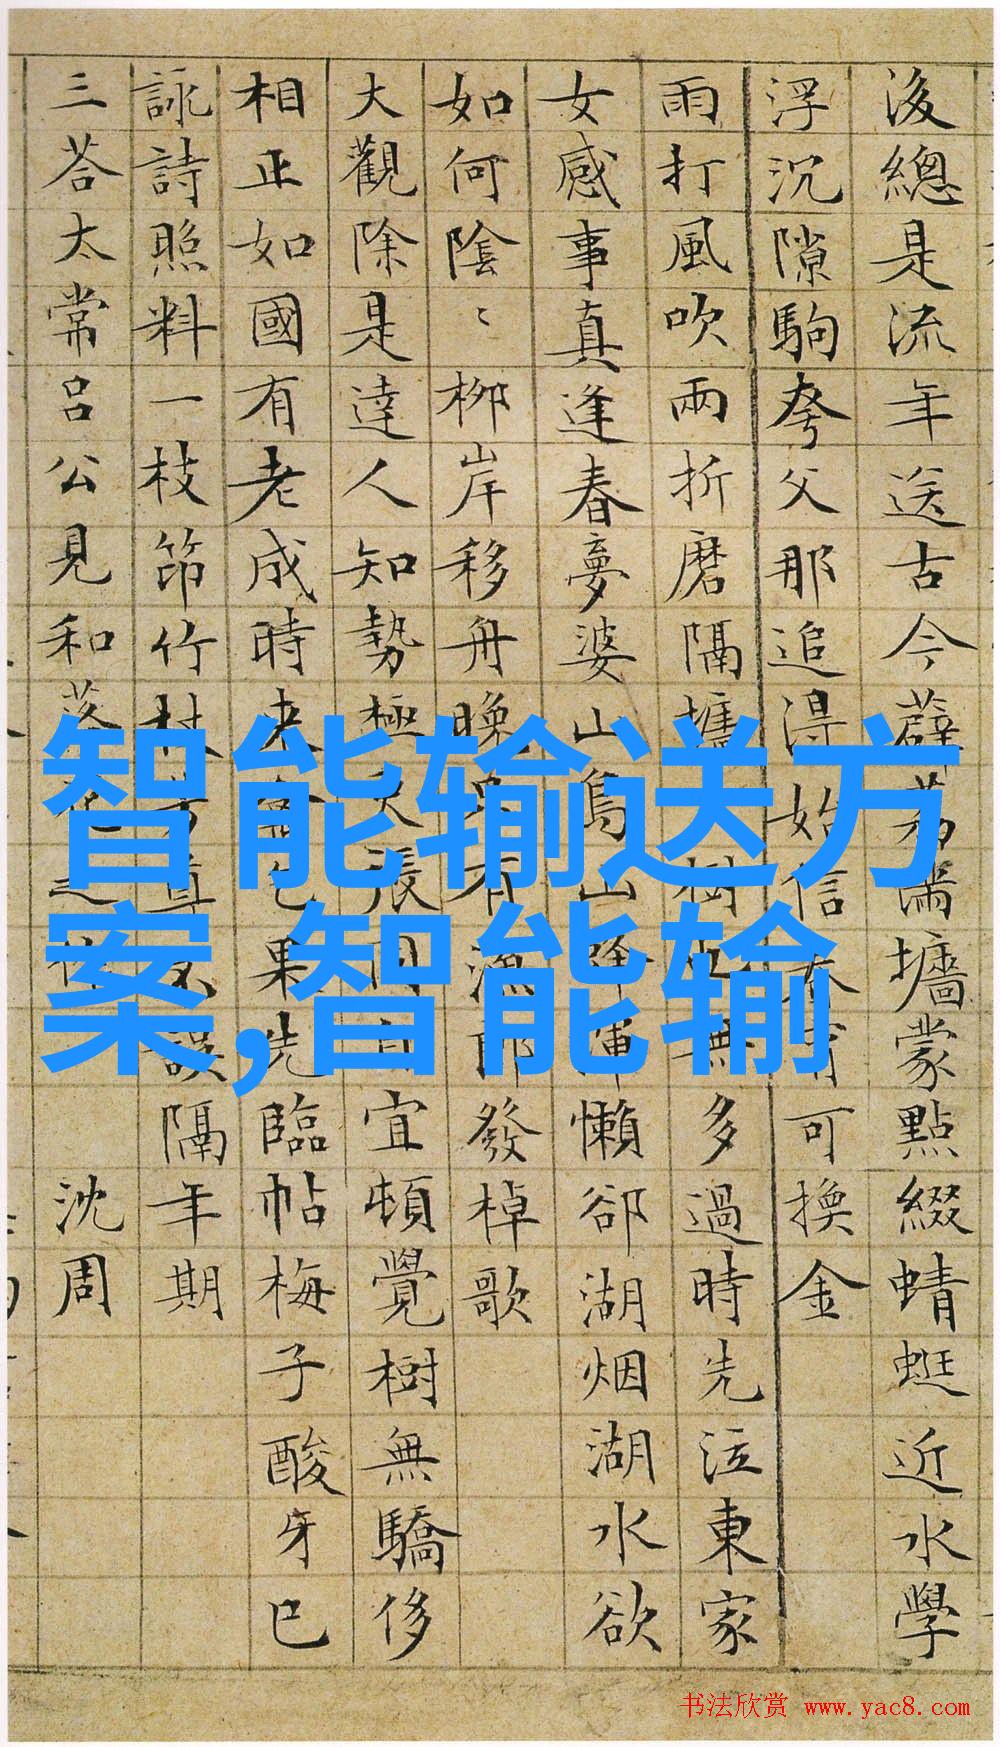 後總是流年送古今薜荔滿墻蒙點綴蜻蜓近水學
浮沉隙駒夸父那追得始信可換金
雨打風吹兩折磨隔墻樹無多過時先泣東家
女感事真逢春夢婆山鳥山懶卻湖烟湖水欲
如何陰〻柳岸移舟晚有漁郎發棹歌
大觀除是達人知勢極張宜頓覺樹無驕侈
相正如國有老成時来果先臨帖梅子酸牙已
詠詩照料一枝笻竹杖誤隔年期
三荅太常呂公見和落花之作 沈周
智能输送方
案,智能输
书法欣赏 www.yac8.com